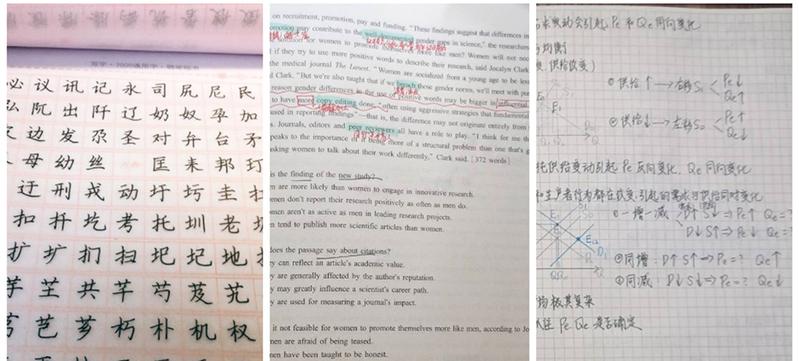 写字·7000通用字·钢笔楷书
必 议 讯 记 永 司 尻 尼 民
弘 阢 出 阡 辽 奶 奴 孕 加
边 发 尕 圣 对 弁 台 矛
母 幼 丝 匡 耒 邦 玎
迂 刑 戎 动 圩 圬 圭 扛
扣 扦 圪 考 托 圳 老
扩 圹 扪 扫 圯 圮 地
芋 芏 共 芊 芍 芨 芄
芎 芭 芗 朽 朴 机 权
on recruitment, promotion, pay and funding. "These findings suggest that differences in
promotion may contribute to the well-documented gender gaps in science," the researchers
solution for women to promote themselves more like men? Women will not nec
t if they try to use more positive words to describe their research, said Jocalyn Clark
the medical journal The Lancet. "Women are socialized from a young age to be less
d Clark. "But we're also taught that if we breach these gender norms, we'll meet with pu
reason gender differences in the use of positive words may be bigger in influential
to have more copy editing done, "often reining aggressive strategies that fundamental
used in reporting findings"—that is, the difference may not originate entirely from
Journals, editors and peer reviewers all have a role to play. "I think for me th
peaks to the importance of it being more of a structural problem than one that's
asking women to talk about their work differently," Clark said. [372 words]
is the finding of the new study?
en are more likely than women to engage in innovative research.
men don't report their research positively as often as men do.
men aren't as active as men in leading research projects.
n tend to publish more scientific articles than women.
does the passage say about citations?
ey can reflect an article's academic value.
ey are generally affected by the author's reputation.
ey may greatly influence a scientist's career path.
ey are used for measuring a journal's impact.
it not feasible for women to promote themselves more like men, according to Jo
men are afraid of being teased.
men have been taught to be honest.
变动会引起 Pe 和 Qe 同向变化
与均衡
供给改变)
①供给↑→右移S₁ Pe↓
Qe↑
②供给↓→左移S₂ Pe↑
Qe↓
供给变动引起 Pe 反向变化, Qe 同向变化
和生产者行为都在改变,引起的需求与供给同时变化
①一增一减 D↑ S↓⇒Pe↑ Qe=?
D↓ S↑⇒Pe↓ Qe=?
②同增: D↑ S↑⇒Pe=? Qe↑
③同减: D↓ S↓⇒Pe=? Qe↓
极其复杂
Pe Qe 是否确定